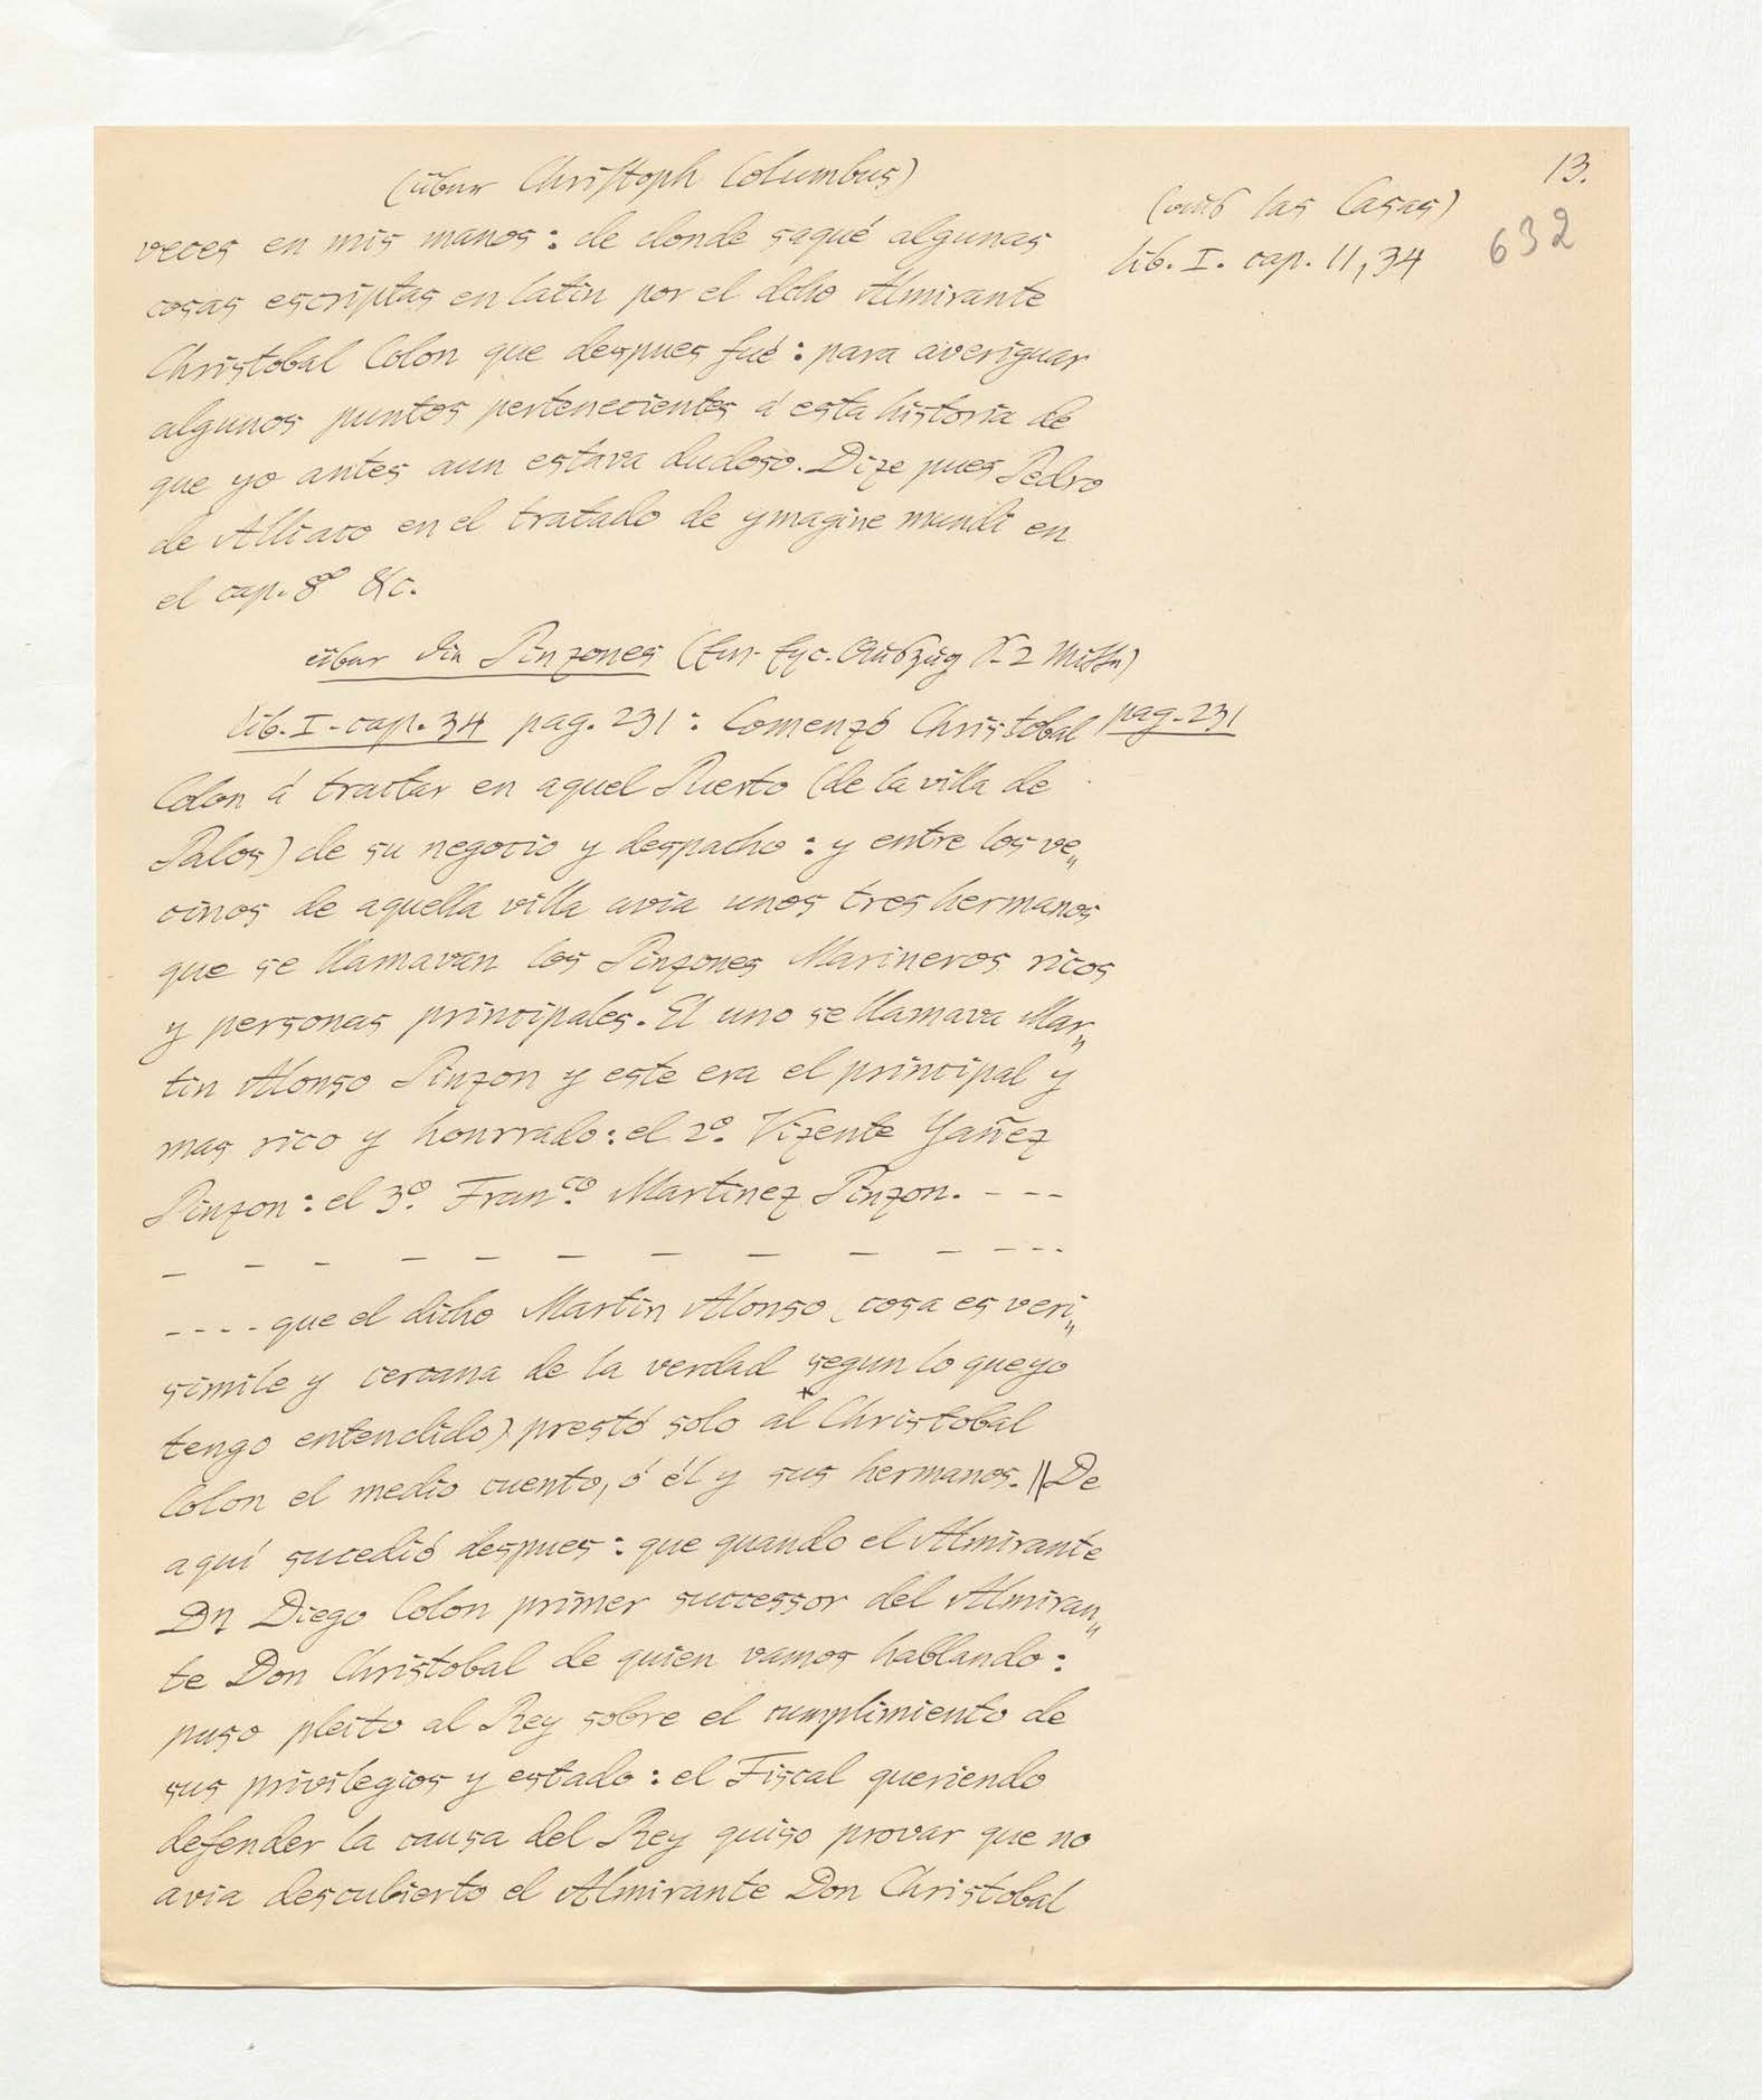 13.
(über Christoph Columbus)
(aus las Casas)
632
lib. I. cap. 11, 34
veces en mis manos: de donde saqué algunas
cosas escriptas en latin por el dcho Almirante
Christobal Colon que despues fué: para averiguar
algunos puntos pertenecientes á esta historia de
que yo antes aun estava dudoso. Dize pues Pedro
de Alliaco en el tratado de ymagine mundi en
el cap. 8º &c.
über die Pinzones
lib. I. cap. 34 pag. 231: Comenzó Christobal
pag. 231
Colon á tractar en aquel Puerto (de la villa de
Palos) de su negocio y despacho: y entre los ve„
cinos de aquella villa avia unos tres hermanos
que se llamavan los Pinzones Marineros ricos
y personas principales. El uno se llamava Mar„
tin Alonso Pinzon y este era el principal y
mas rico y honrrado: el 2º. Vizente Yañez
Pinzon: el 3º. Franco. Martinez Pinzon. - - -
- - - - - - - - - - - - -
- - - - que el dicho Martin Alonso (cosa es veri„
simile y cercana de la verdad segun lo que yo
tengo entendido) prestó solo al Christobal
Colon el medio cuento, ó él y sus hermanos. || De
aquí sucedió despues: que quando el Almirante
Dn Diego Colon primer successor del Almiran„
te Don Christobal de quien vamos hablando:
puso pleito al Rey sobre el cumplimiento de
sus privilegios y estado: el Fiscal queriendo
defender la causa del Rey quiso provar que no
avia descubierto el Almirante Don Christobal